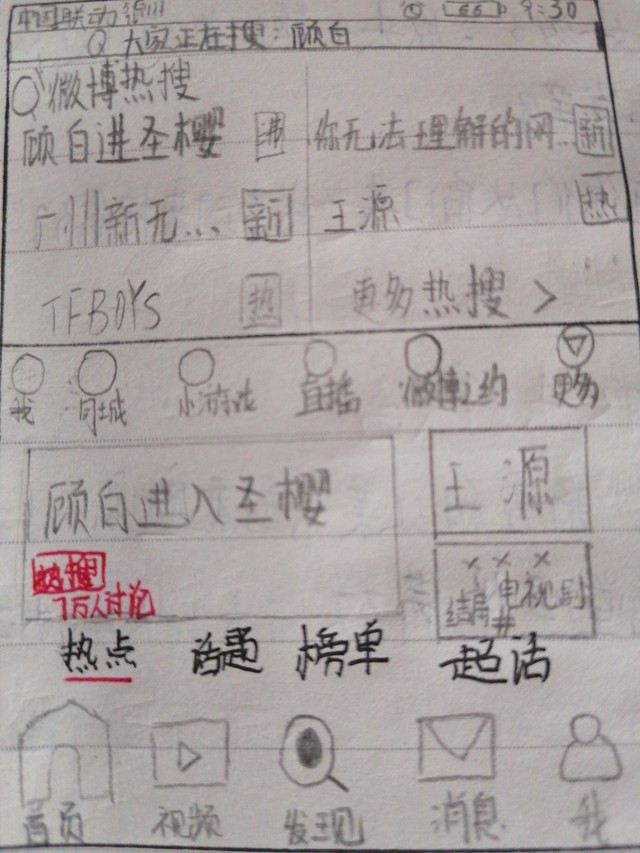 中国联动 66 9:30
大家正在搜：顾白
微博热搜
顾白进圣樱 沸 你无法理解的网... 新
广州新无... 新 王源 热
TFBOYS 热 更多热搜 >
我 同城 小游戏 直播 微博之约 更多
顾白进入圣樱 王源
热搜
7万人讨论
×××
结局 电视剧
#
热点 话题 榜单 超话
首页 视频 发现 消息 我